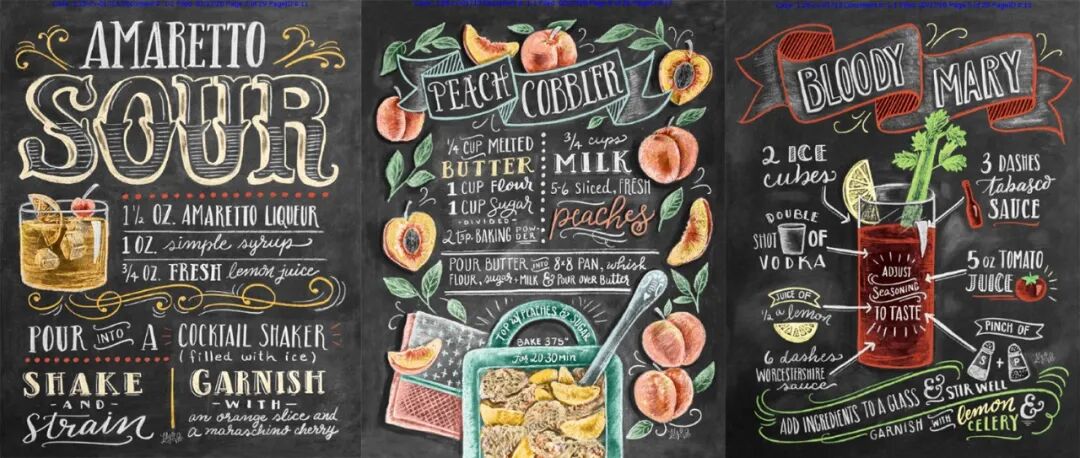 AMARETTO
SOUR
1 1/2 OZ. AMARETTO LIQUEUR
1 OZ. simple syrup
3/4 OZ. FRESH lemon juice
POUR INTO A COCKTAIL SHAKER
(filled with ice)
SHAKE
-AND-
Strain
GARNISH
-WITH-
an orange slice and
a maraschino cherry
PEACH COBBLER
1/4 CUP MELTED
BUTTER
1 CUP Flour
1 CUP Sugar
-DIVIDED-
2 tsp. BAKING POWDER
3/4 cups
MILK
5-6 Sliced, FRESH
peaches
POUR BUTTER INTO 8x8 PAN, whisk
FLOUR, sugar + MILK & POUR OVER Butter
TOP w/ PEACHES & SUGAR
BAKE 375°
for 20-30 min
BLOODY MARY
2 ICE
cubes
DOUBLE
SHOT OF
VODKA
JUICE OF
1/2 a lemon
6 dashes
WORCESTERSHIRE
sauce
3 DASHES
tabasco
SAUCE
5 OZ TOMATO
JUICE
PINCH OF
+
ADJUST
SEASONING
TO TASTE
ADD INGREDIENTS TO A GLASS & STIR WELL
GARNISH WITH lemon &
CELERY